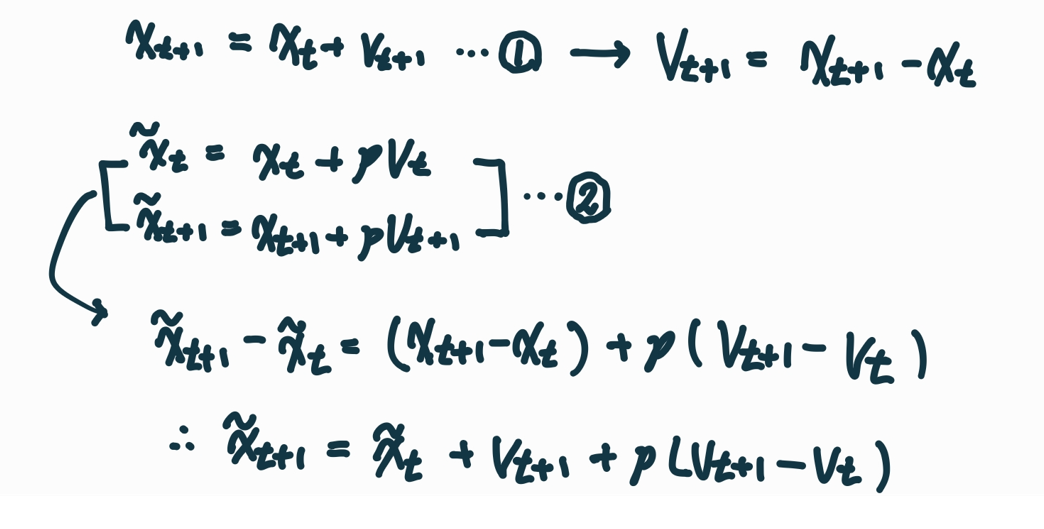 x_{t+1} = x_t + v_{t+1} ... ① → V_{t+1} = x_{t+1} - x_t
x̃_t = x_t + pV_t
x̃_{t+1} = x_{t+1} + pV_{t+1} ... ②
x̃_{t+1} - x̃_t = (x_{t+1} - x_t) + p(V_{t+1} - V_t)
∴ x̃_{t+1} = x̃_t + V_{t+1} + p(V_{t+1} - V_t)